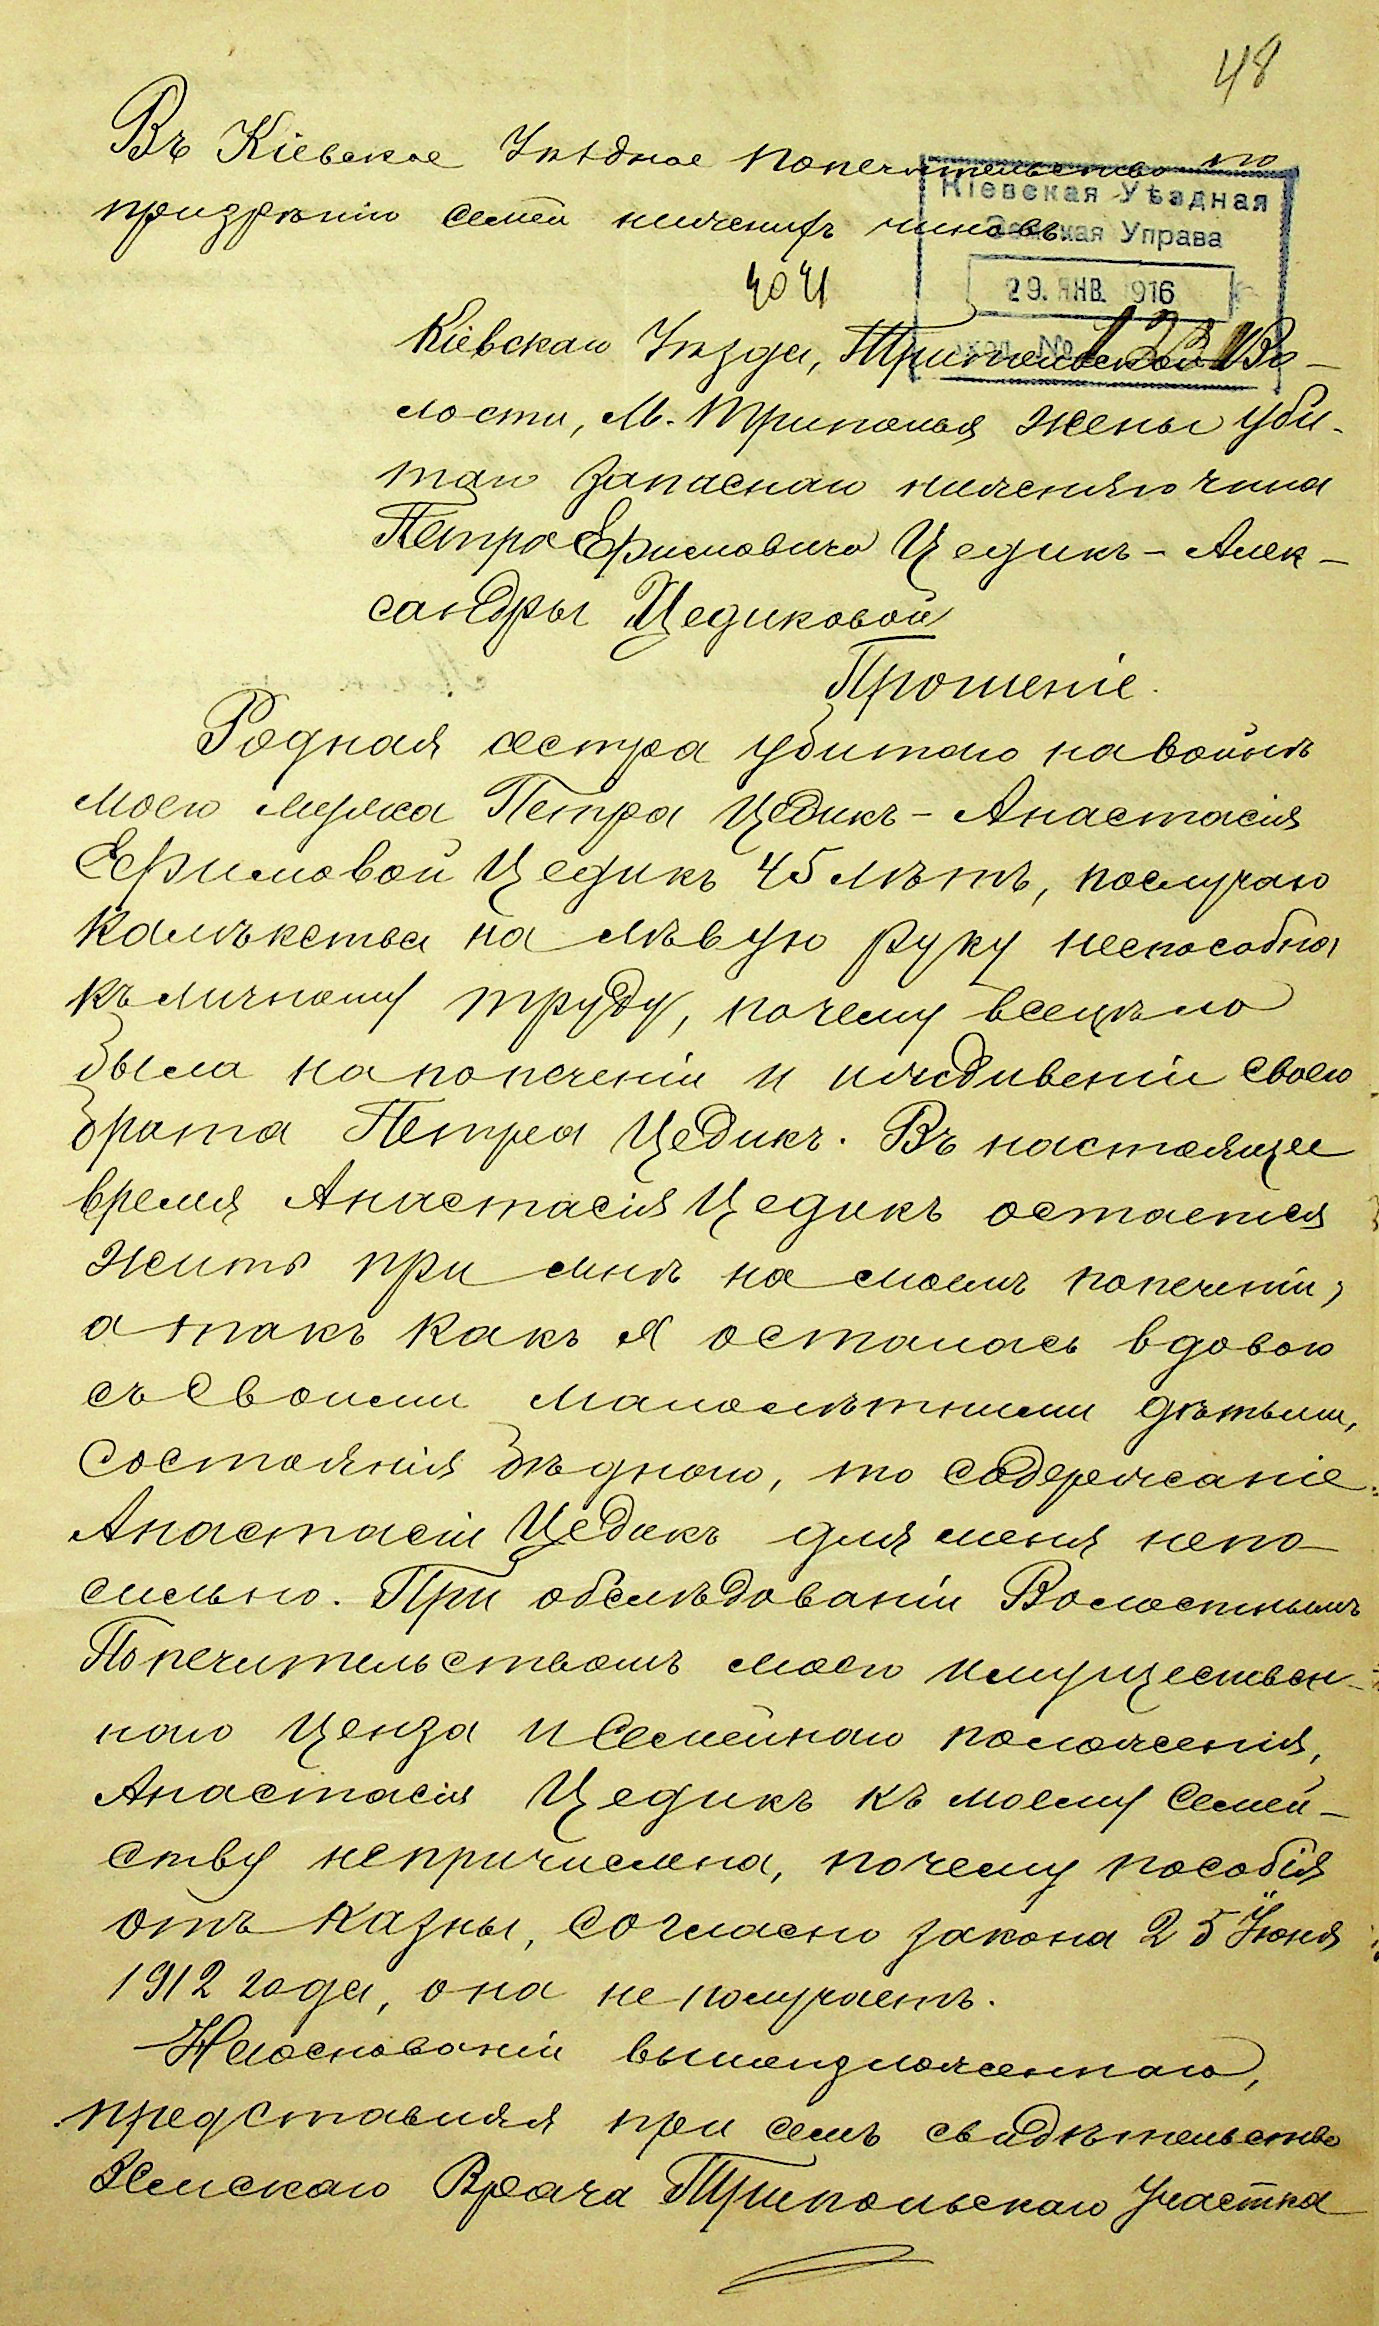 48
Въ Кіевское Уѣздное Попечительство по
призрѣнію семей нижнихъ чиновъ.
Кіевская Уѣздная
Земская Управа
29. ЯНВ. 1916
4041
вход. №
Кіевскаго Уѣзда, Трипольской Во-
лости, М. Триполья жены уби-
таго запаснаго нижняго чина
Петра Ефимовича Цедикъ - Алек-
сандры Цедиковой
Прошеніе.
Родная сестра убитаго на войнѣ
моего мужа Петра Цедикъ - Анастасія
Ефимовой Цедикъ 45 лѣтъ, послучаю
калѣкства на лѣвую руку неспособна
къ личному труду, почему всецѣло
была на попеченіи и иждивеніи своего
брата Петра Цедикъ. Въ настоящее
время Анастасія Цедикъ остается
жить при мнѣ на моемъ попеченіи,
а такъ какъ я осталась вдовою
съ своими малолѣтними дѣтьми,
состоянія бѣднаго, то содержаніе
Анастасіи Цедикъ для меня непо-
сильно. При обслѣдованіи Волостнымъ
Попечительствомъ моего имуществен-
наго ценза и семейнаго положенія,
Анастасія Цедикъ къ моему семей-
ству непричислена, почему пособія
отъ казны, согласно закона 25 Іюня
1912 года, она не получаетъ.
На основаніи вышеизложеннаго,
представляя при семъ свидѣтельство
Земскаго Врача Трипольскаго Участка